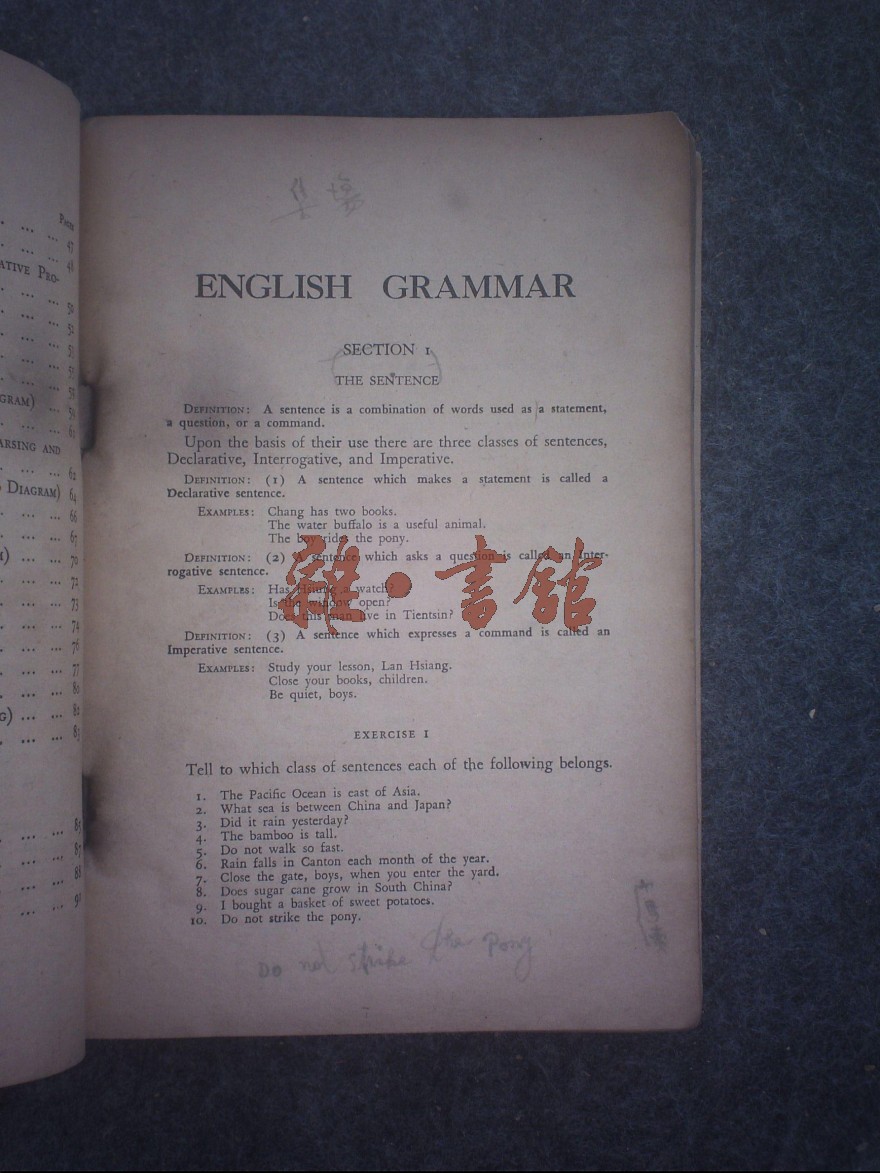 Page
... ... 47
... ... 48
ATIVE PRO-
... ... 50
... ... 52
... ... 53
GRAM) ...
... ... 61
ARSING AND
... ... 62
DIAGRAM) 64
... ... 66
... ... 67
... ... 70
... ... 72
... ... 73
... ... 74
... ... 76
... ... 77
... ... 80
G) ... ... 82
... ... 83
... ... 85
... ... 87
... ... 88
... ... 90
ENGLISH GRAMMAR
SECTION 1
THE SENTENCE
DEFINITION: A sentence is a combination of words used as a statement,
a question, or a command.
Upon the basis of their use there are three classes of sentences,
Declarative, Interrogative, and Imperative.
DEFINITION: (1) A sentence which makes a statement is called a
Declarative sentence.
EXAMPLES: Chang has two books.
The water buffalo is a useful animal.
The boy rides the pony.
DEFINITION: (2) A sentence which asks a question is called an Inter-
rogative sentence.
EXAMPLES: Has Hsiung a watch?
Is the window open?
Does this man live in Tientsin?
雜·書館
DEFINITION: (3) A sentence which expresses a command is called an
Imperative sentence.
EXAMPLES: Study your lesson, Lan Hsiang.
Close your books, children.
Be quiet, boys.
EXERCISE 1
Tell to which class of sentences each of the following belongs.
1. The Pacific Ocean is east of Asia.
2. What sea is between China and Japan?
3. Did it rain yesterday?
4. The bamboo is tall.
5. Do not walk so fast.
6. Rain falls in Canton each month of the year.
7. Close the gate, boys, when you enter the yard.
8. Does sugar cane grow in South China?
9. I bought a basket of sweet potatoes.
10. Do not strike the pony.
Do not strike the pony